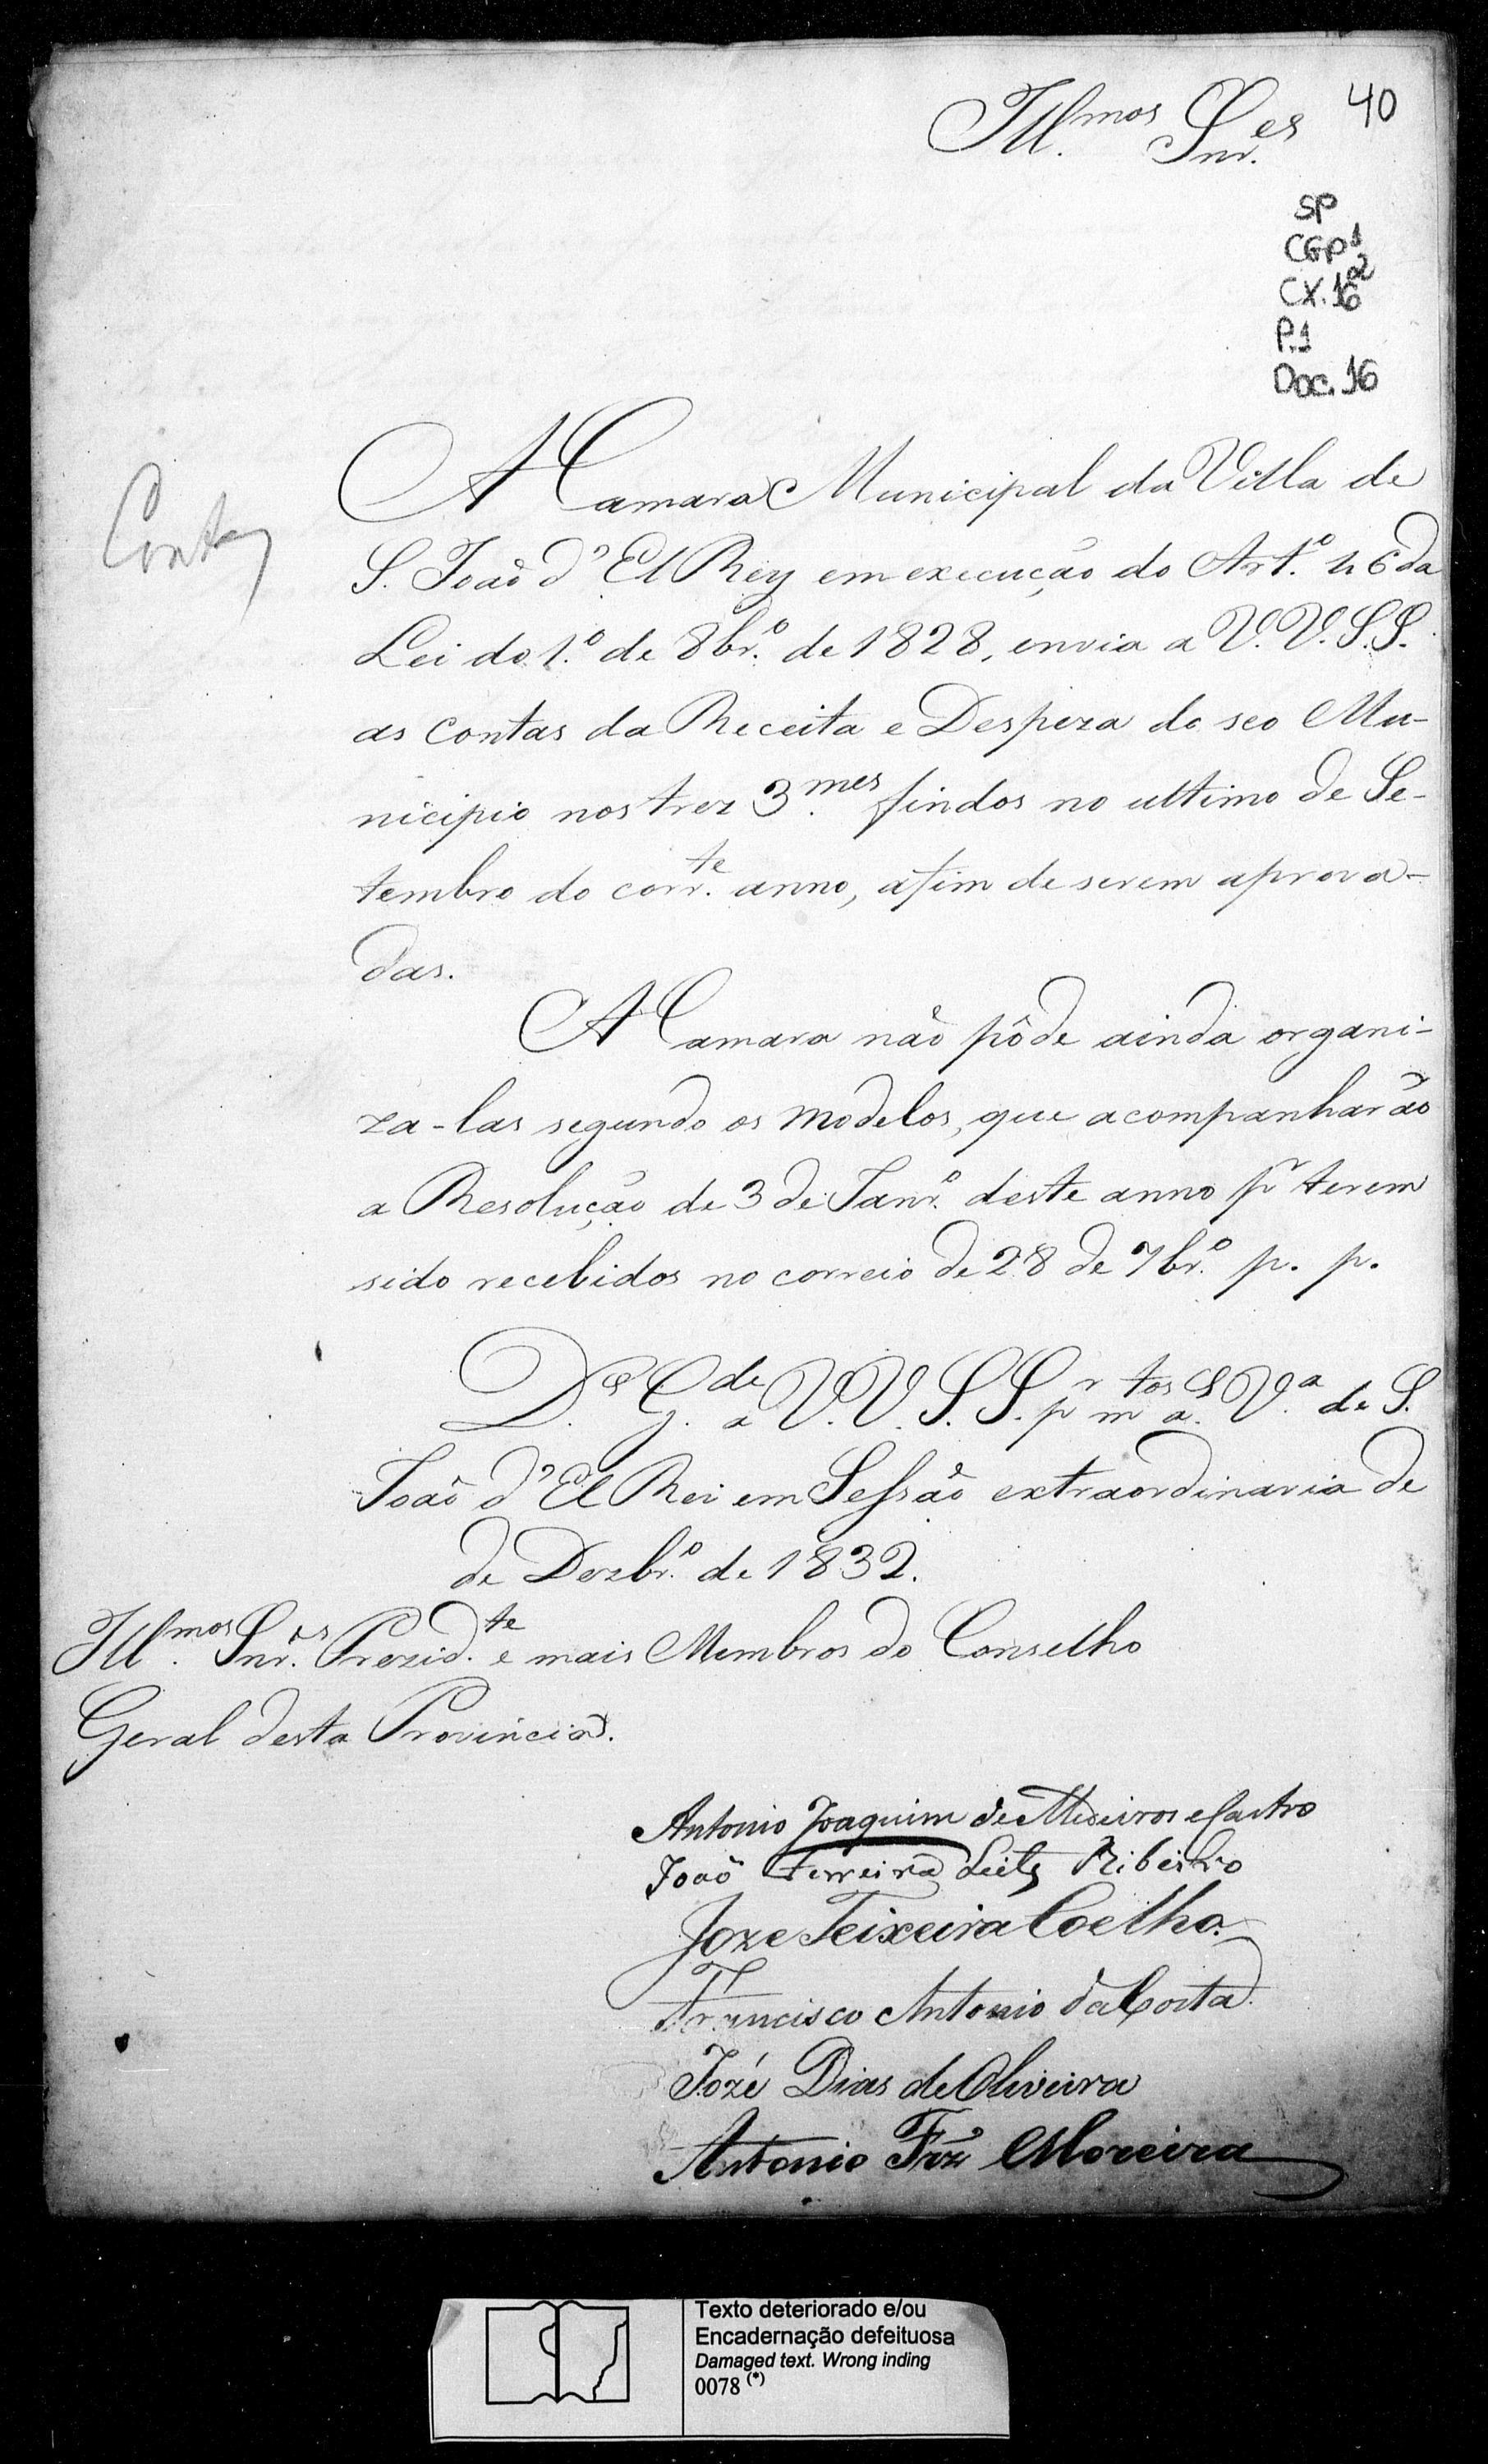 Ill.mos Snr.es
40
SP
CGP1
CX.16
P.1
Doc. 16
Contas
A Camara Municipal da Villa de
S. João d'El Rey em execução do Art.º 46 da
Lei do 1.º de 8br.º de 1828, envia a V.V.S.S.
as Contas da Receita e Despeza do seo Mu-
nicipio nos trez 3.mes findos no ultimo de Se-
tembro do corr.te anno, afim de serem aprova-
das.
A Camara não pôde ainda organi-
za-las segundo os modelos, que acompanharão
a Resolução de 3 de Janr.º deste anno pr terem
sido recebidos no correio de 28 de 7br.º p. p.
D.s G.de a V.V.S.S. pr mtos as V.a de S.
João d'El Rei em Sessão extraordinaria de
de Dezbr.º de 1832.
Ill.mos Snr.es Prezid.te e mais Membros do Conselho
Geral desta Provincia.
Antonio Joaquim de Medeiros e Castro
João Ferreira Leite Ribeiro
Joze Teixeira Coelho.
Francisco Antonio da Costa.
Jozé Dias de Oliveira
Antonio Frz Moreira
Texto deteriorado e/ou
Encadernação defeituosa
Damaged text. Wrong inding
0078 (*)